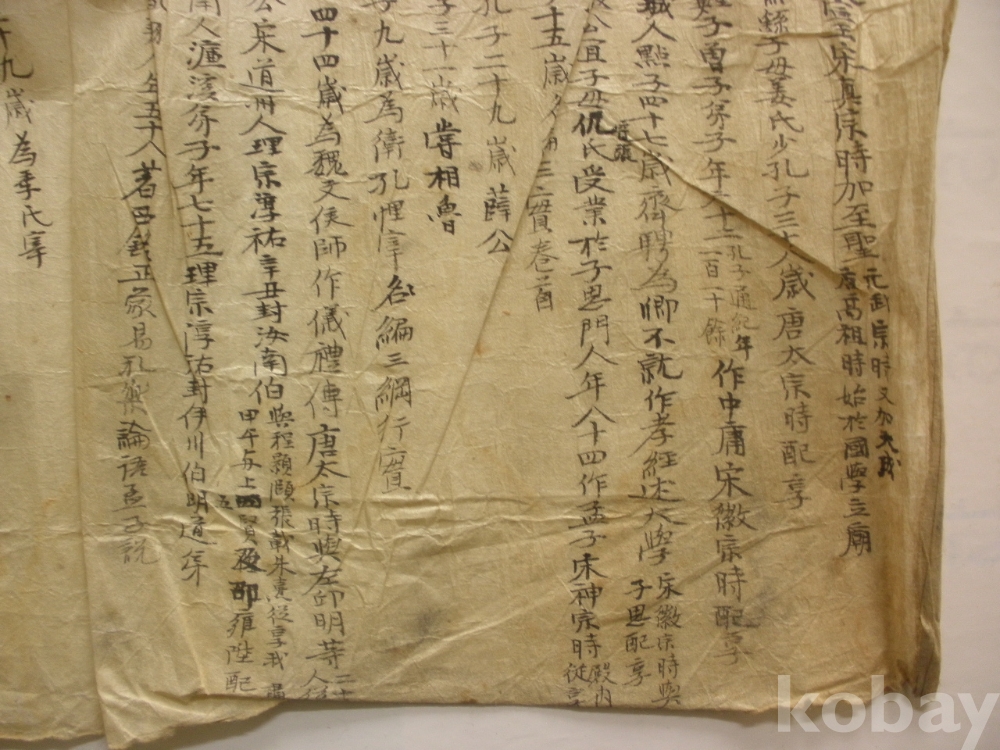 宋真宗時加至聖 元武宗時又加大成
唐高祖時始於國學立廟
子母姜氏少孔子三十歲唐太宗時配享
子曾子弟子年六十二 孔子通紀年一百一十餘 作中庸宋徽宗時配享
城人點子四十七歲齊聘為卿不就作孝經述大學 宋徽宗時與子思配享
公宜子母仉氏受業於子思門人年八十四作孟子宋神宗時 殿內從享
十五歲
孔子二十九歲 薛公
子三十一歲 嘗相魯
子九歲為衛孔悝宰 名編三綱行實
四十四歲為魏文侯師作儀禮傳唐太宗時與左邱明等二十 人從
公宋道州人理宗淳祐辛丑封汝南伯 與程顥頤張載朱熹從享我
甲午 上 賢 邵雍陞配
南人濂溪弟子年七十五理宗淳祐封伊川伯明道弟
年五十 著 正蒙易孔樂論語孟子說
十九歲為季氏宰
kobay